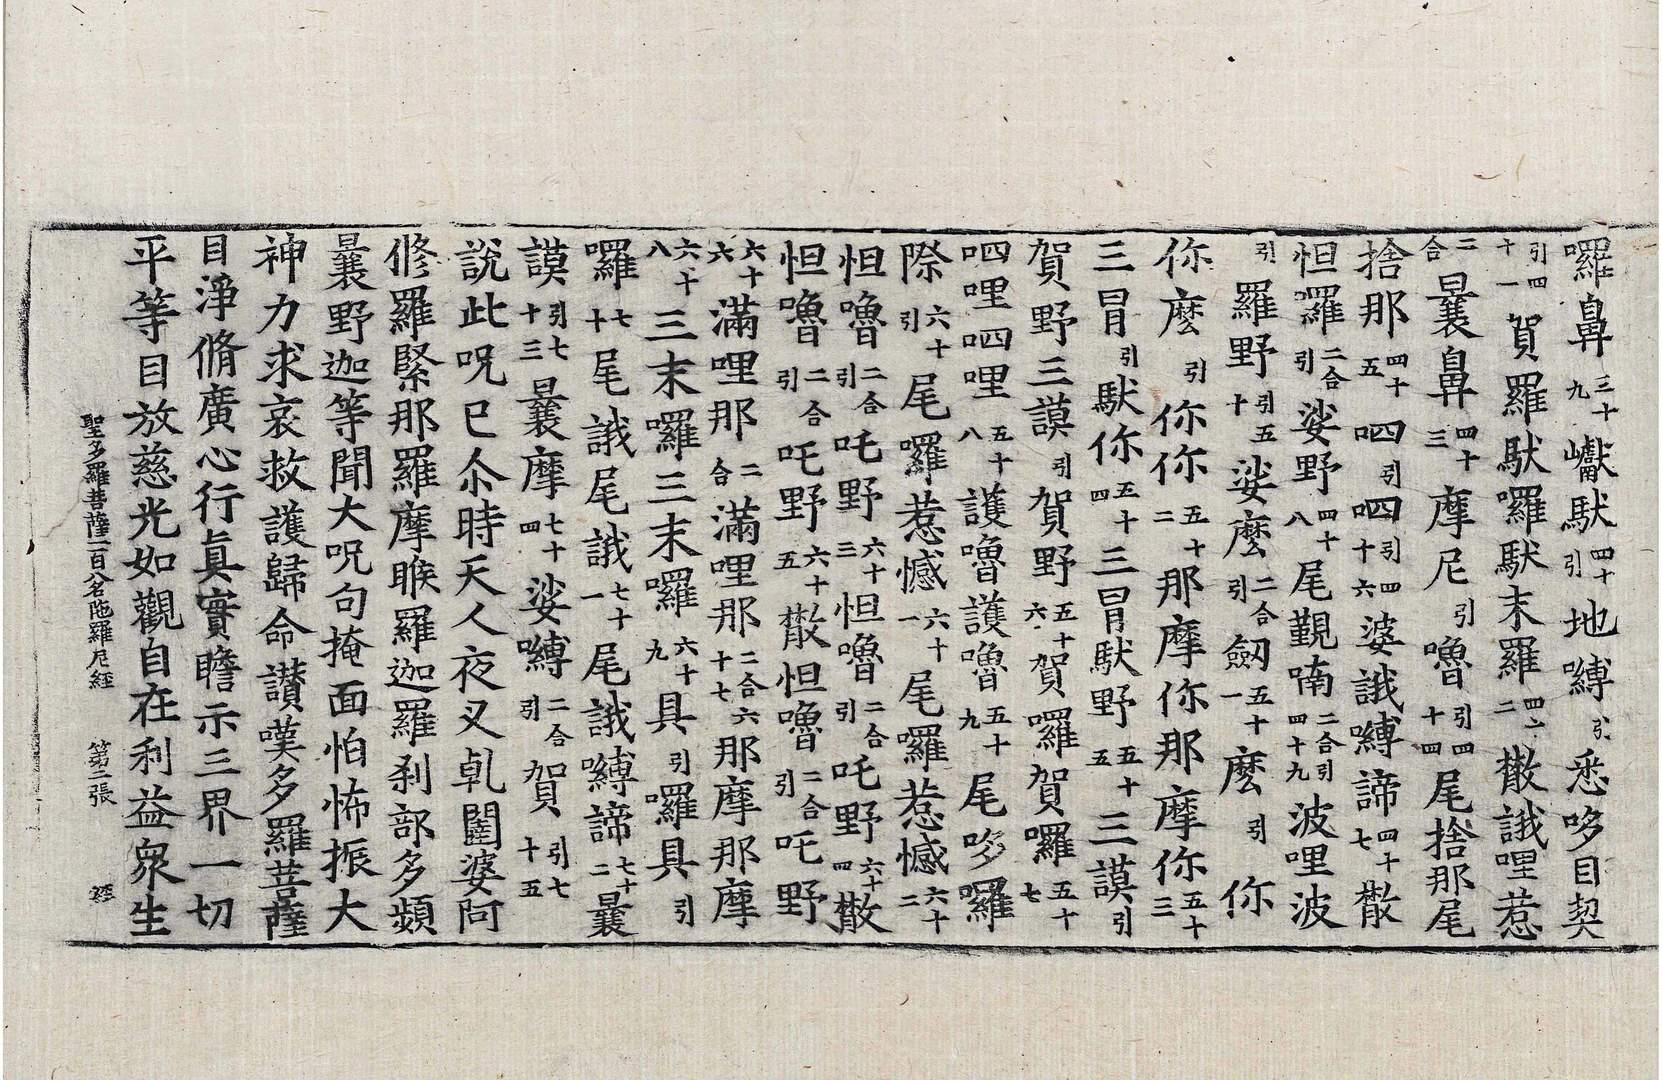 囉鼻三十九巘馱引四十地嚩引悉哆目契
引四十一賀羅馱囉馱末羅四十二㪚誐哩惹
二合曩鼻四十三摩尼引嚕引四十四尾捨那尾
捨那四十五呬引呬引四十六婆誐嚩諦四十七㪚
怛囉二合引娑野四十八尾覩喃二合引四十九波哩波
引羅野引五十娑麽二合引劒五十一麽引你
你麽引你你五十二那摩你那摩你五十三
三冒引馱你五十四三冒馱野五十五三謨引
賀野三謨引賀野五十六賀囉賀囉五十七
呬哩呬哩五十八護嚕護嚕五十九尾哆囉
際引六十尾囉惹憾六十一尾囉惹憾六十二
怛嚕二合引吒野六十三怛嚕二合引吒野六十四㪚
怛嚕二合引吒野六十五㪚怛嚕二合引吒野
六十六滿哩那二合滿哩那二合六十七那摩那摩
六十八三末囉三末囉六十九具引囉具引
囉七十尾誐尾誐七十一尾誐嚩諦七十二曩
謨引七十三曩摩七十四娑嚩二合引賀引七十五
說此呪已尒時天人夜叉乹闥婆阿
修羅緊那羅摩睺羅迦羅刹部多頻
曩野迦等聞大呪句掩面怕怖振大
神力求哀救護歸命讃嘆多羅菩薩
目淨脩廣心行眞實瞻示三界一切
平等目放慈光如觀自在利益衆生
聖多羅菩薩一百八名陁羅尼經 第二張 經